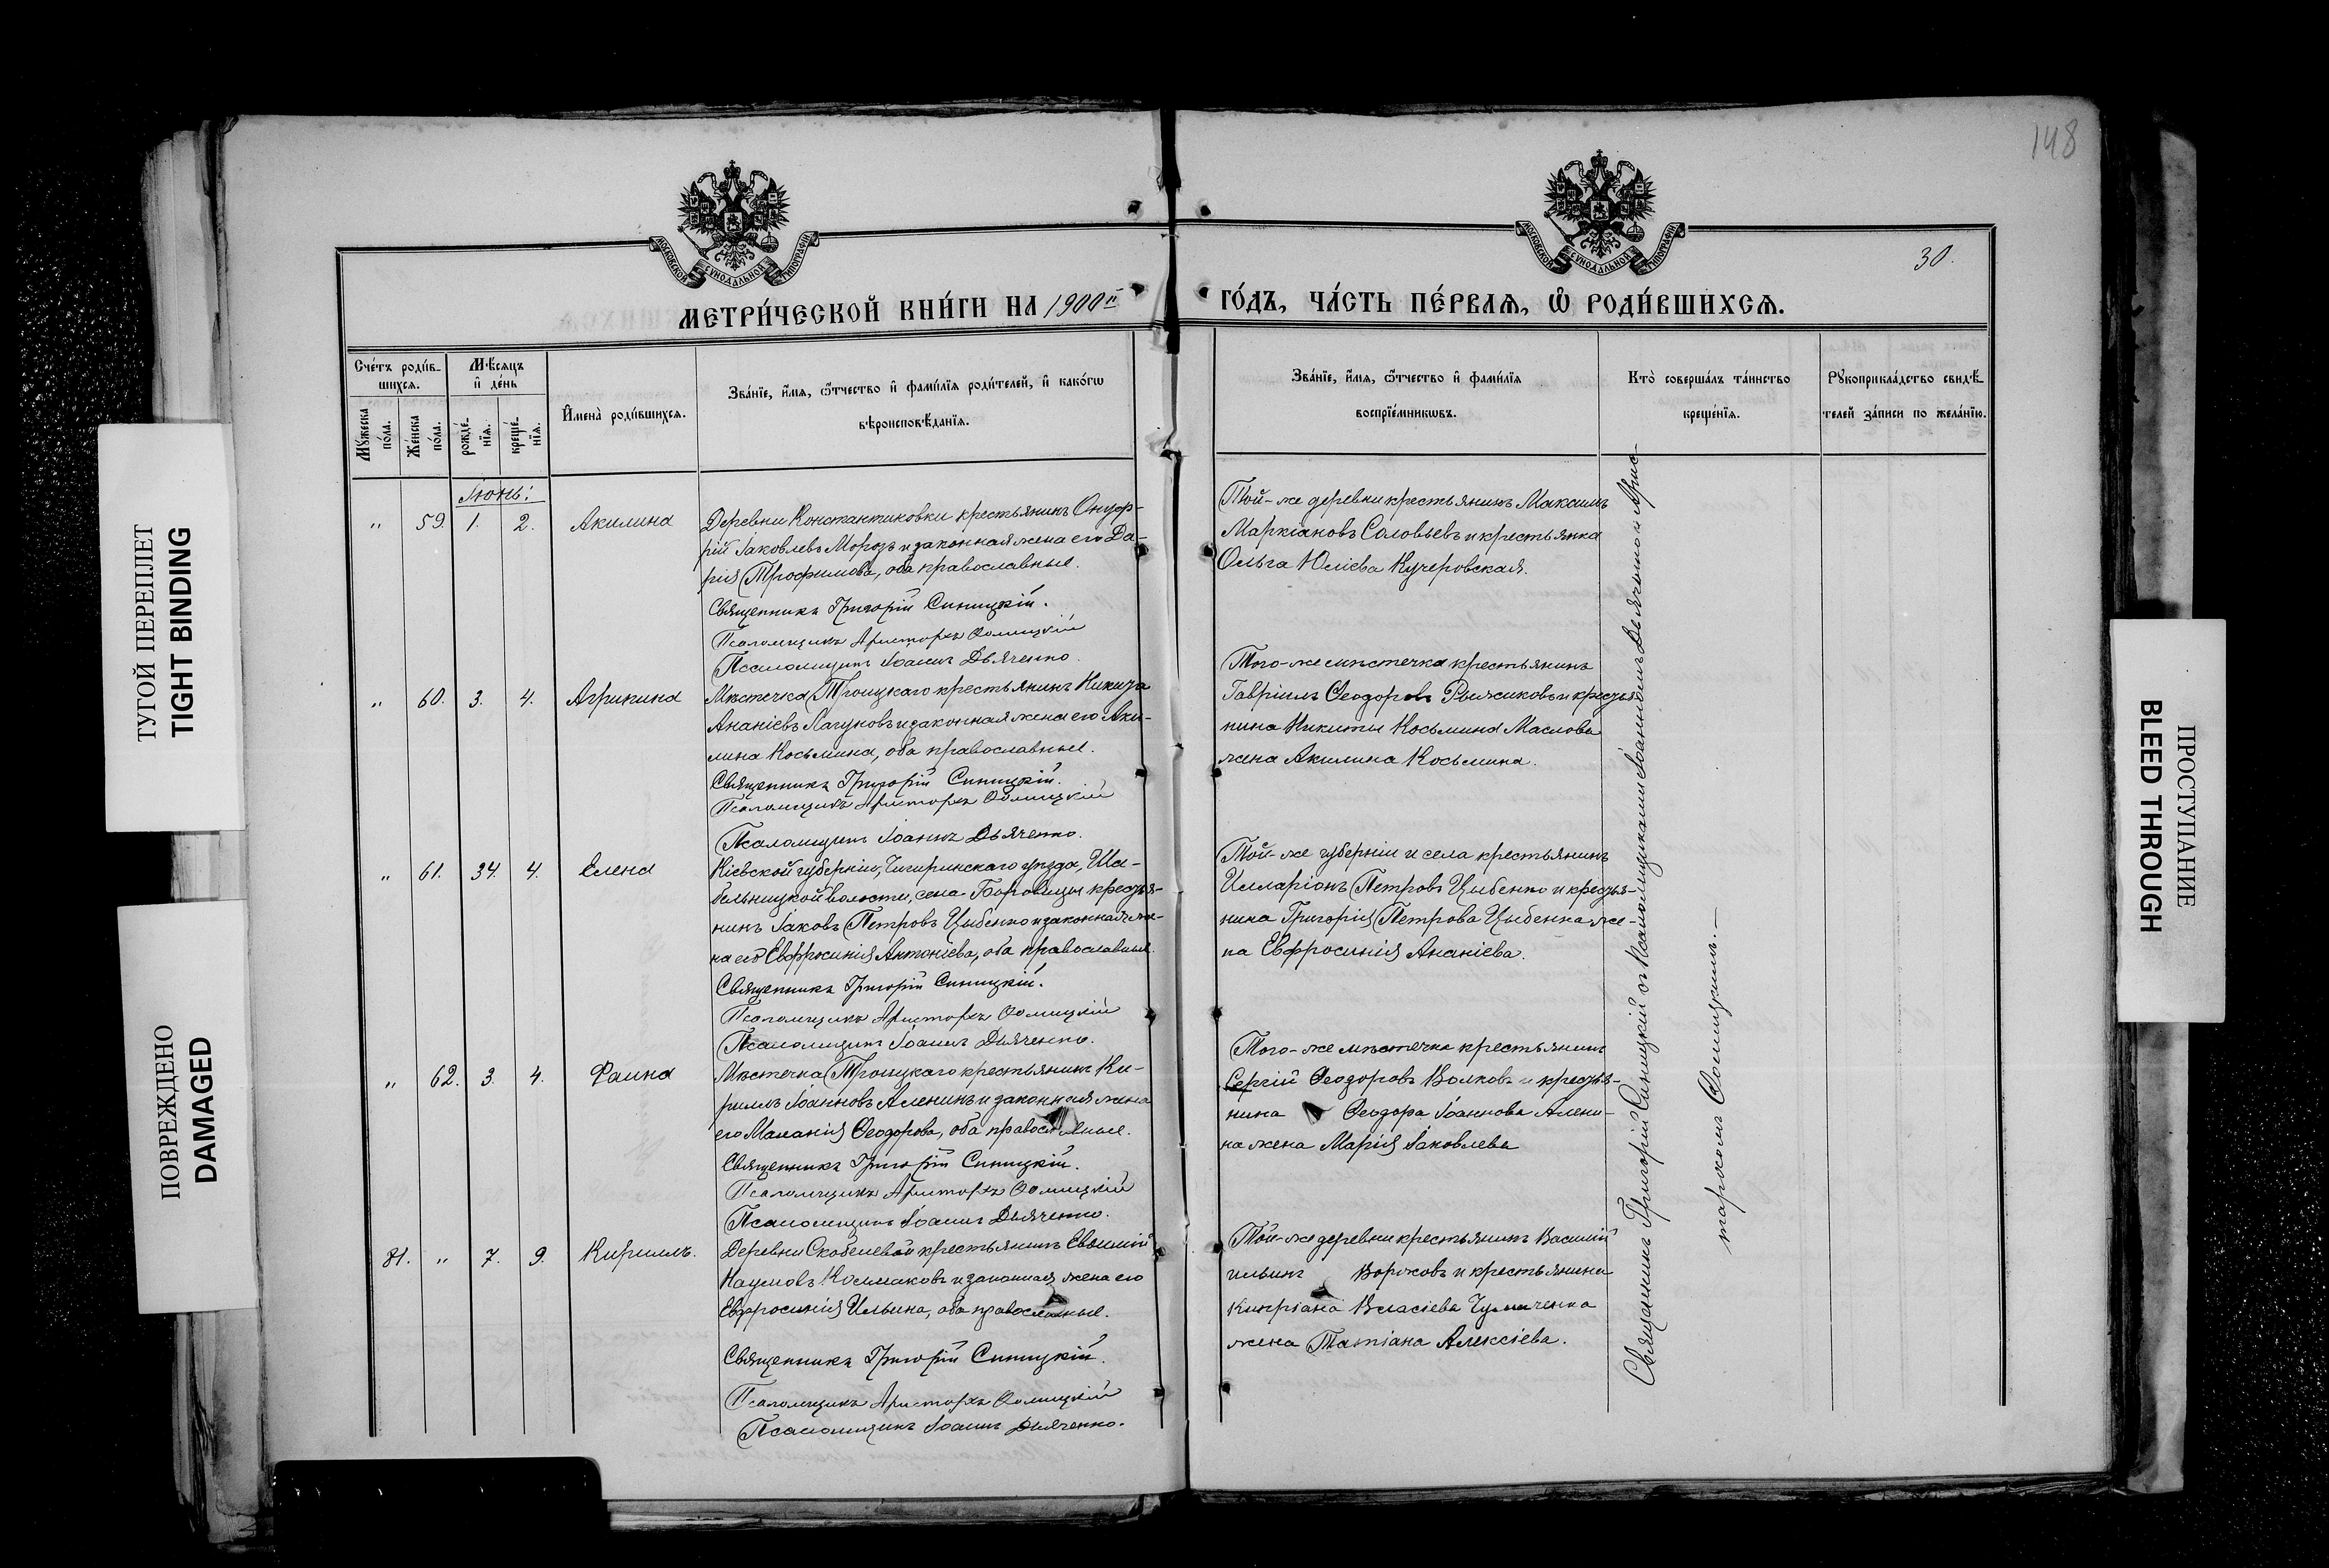 148
МОСКОВСКОЙ СѴНОДАЛЬНОЙ ТИПОГРАФІИ
МОСКОВСКОЙ СѴНОДАЛЬНОЙ ТИПОГРАФІИ
30.
МЕТРИ́ЧЕСКОЙ КНИ́ГИ НА 1900й
ГО́ДЪ, ЧА́СТЬ ПЕ́РВАѦ, Ѽ РОДИ́ВШИХСѦ.
Сче́тъ роди́в-
шихсѧ.
Мꙋжеска по́ла.
Же́нска по́ла.
Мѣ́сѧцъ
и҆ де́нь
рожде́-
нїѧ.
креще́-
нїѧ.
И҆мена̀ роди́вшихсѧ.
Зва́нїе, и҆́мѧ, ѻ҆́тчество и҆ фами́лїѧ роди́телей, и҆ како́гѡ
вѣроисповѣ́данїѧ.
Зва́нїе, и҆́мѧ, ѻ҆́тчество и҆ фами́лїѧ
воспрїе́мникѡвъ.
Кто̀ соверша́лъ та́инство
креще́нїѧ.
Рꙋкоприкла́дство свидѣ́-
телей за́писи по жела́нїю.
Іюнь:
" 59. 1. 2. Акилина
Деревни Константиновки крестьянинъ Онуф-
рій Іаковлевъ Морозъ и законная жена его Да-
рія Трофимова, оба православные.
Священникъ Григорій Синицкій.
Псаломщикъ Аристархъ Ѳомицкій
Псаломщикъ Іоаннъ Дьяченко.
Той-же деревни крестьянинъ Максимъ
Маркіановъ Соловьевъ и крестьянка
Ольга Юліева Кучеровская.
" 60. 3. 4. Агрипина
Мѣстечка Троицкаго крестьянинъ Никита
Ананіевъ Лагуновъ и законная жена его Аки-
лина Косьмина, оба православные.
Священникъ Григорій Синицкій.
Псаломщикъ Аристархъ Ѳомицкій
Псаломщикъ Іоаннъ Дьяченко.
Того-же мѣстечка крестьянинъ
Гавріилъ Ѳеодоровъ Рыжиковъ и крестья-
нина Никиты Косьмина Маслова
жена Акилина Косьмина.
" 61. 34. 4. Елена
Кіевской губерніи, Чигиринскаго уѣзда, Ша-
бельницкой волости, села Боровицы крестья-
нинъ Іаковъ Петровъ Цыбенко и законная же-
на его Евфросинія Антоніева, оба православные.
Священникъ Григорій Синицкій.
Псаломщикъ Аристархъ Ѳомицкій
Псаломщикъ Іоаннъ Дьяченко.
Той-же губерніи и села крестьянинъ
Илларіонъ Петровъ Цыбенко и крестья-
нина Григорія Петрова Цыбенка же-
на Евфросинія Ананіева.
" 62. 3. 4. Фаина
Мѣстечка Троицкаго крестьянинъ Ки-
риллъ Іоанновъ Аленинъ и законная жена
его Маланія Ѳеодорова, оба православные.
Священникъ Григорій Синицкій.
Псаломщикъ Аристархъ Ѳомицкій
Псаломщикъ Іоаннъ Дьяченко.
Того-же мѣстечка крестьянинъ
Сергій Ѳеодоровъ Волковъ и крестья-
нина Ѳеодора Іоаннова Алени-
на жена Марія Іаковлева
81. " 7. 9. Кириллъ.
Деревни Скобелевой крестьянинъ Евѳимій
Наумовъ Колмаковъ и законная жена его
Евфросинія Ильина, оба православные.
Священникъ Григорій Синицкій.
Псаломщикъ Аристархъ Ѳомицкій
Псаломщикъ Іоаннъ Дьяченко.
Той-же деревни крестьянинъ Василій
Ильинъ Ворожовъ и крестьянина
Кипріана Власіева Чумаченка
жена Татіана Алексіева.
Священникъ Григорій Синицкій съ псаломщиками Іоанномъ Дьяченкомъ и Арис-
тархомъ Ѳомицкимъ.—
ТУГОЙ ПЕРЕПЛЕТ
TIGHT BINDING
ПОВРЕЖДЕНО
DAMAGED
ПРОСТУПАНИЕ
BLEED THROUGH